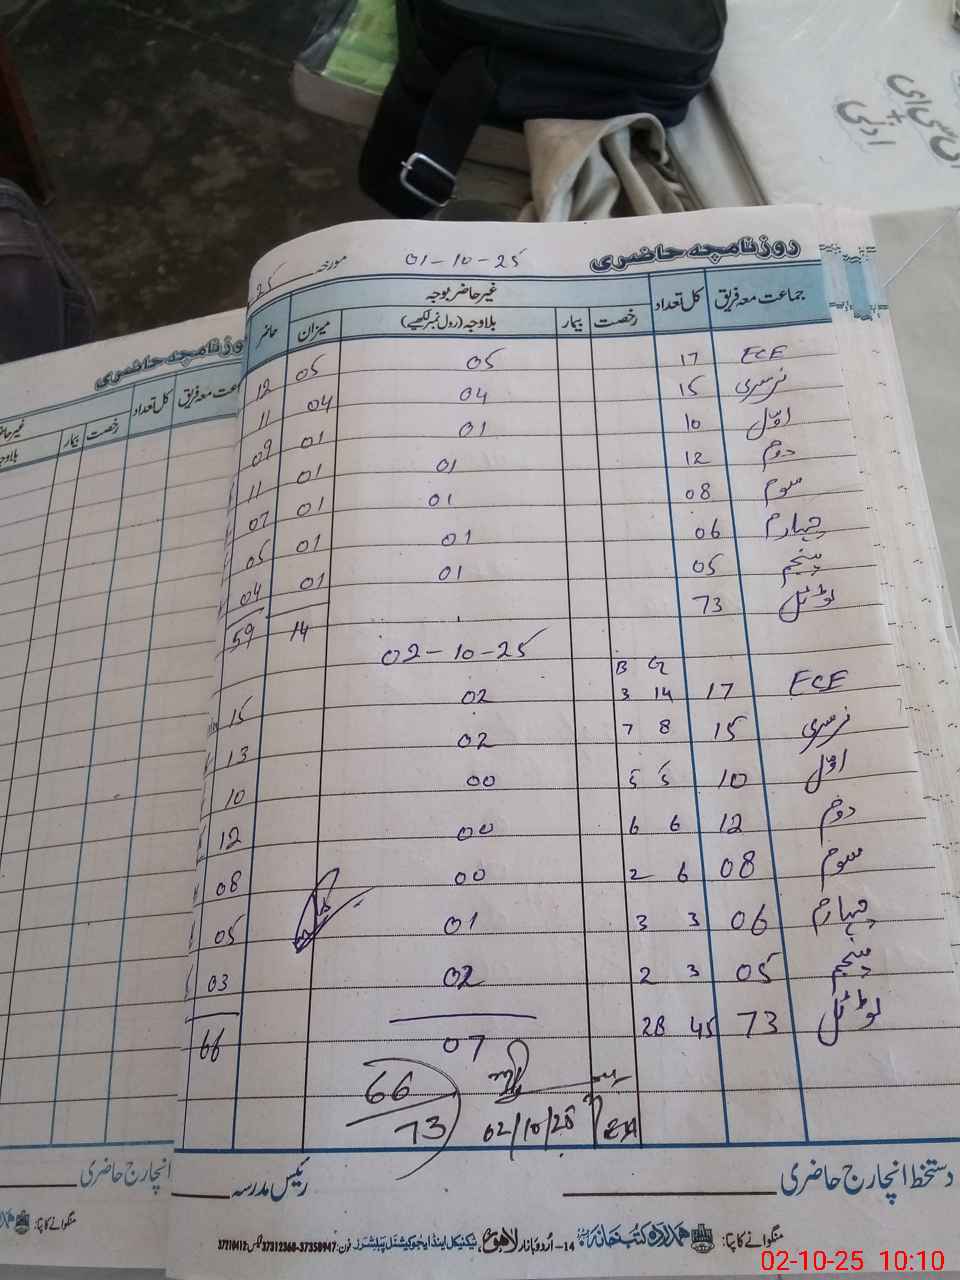 ن سی ای
+
ادنیٰ
روزنامچہ حاضری 01-10-25 مورخہ 25
جماعت معہ فریق کل تعداد غیر حاضر بوجہ حاضر
رخصت بیمار بلاوجہ (رول نمبر لکھیے) میزان
ECE 17 05 05 12
نرسری 15 04 04 11
اوّل 10 01 01 09
دوم 12 01 01 11
سوم 08 01 01 07
چہارم 06 01 01 05
پنجم 05 01 01 04
ٹوٹل 73 14 59
02-10-25
B G
ECE 17 14 3 02 15
نرسری 15 8 7 02 13
اوّل 10 5 5 00 10
دوم 12 6 6 00 12
سوم 08 6 2 00 08
چہارم 06 3 3 01 05
پنجم 05 3 2 02 03
ٹوٹل 73 45 28 07 66
66
73
02/10/25
دستخط انچارج حاضری رئیس مدرسہ
منگوانے کا پتا: ہمدرد کتب خانہ 14-اُردو بازار لاہور، ٹیکنیکل اینڈ ایجوکیشنل پبلیشرز فون: 37358947-37312368 فیکس: 37210412
روزنامچہ حاضری
جماعت معہ فریق کل تعداد غیر حاضر
رخصت بیمار بلاوجہ
انچارج حاضری
منگوانے کا پتا:
02-10-25 10:10